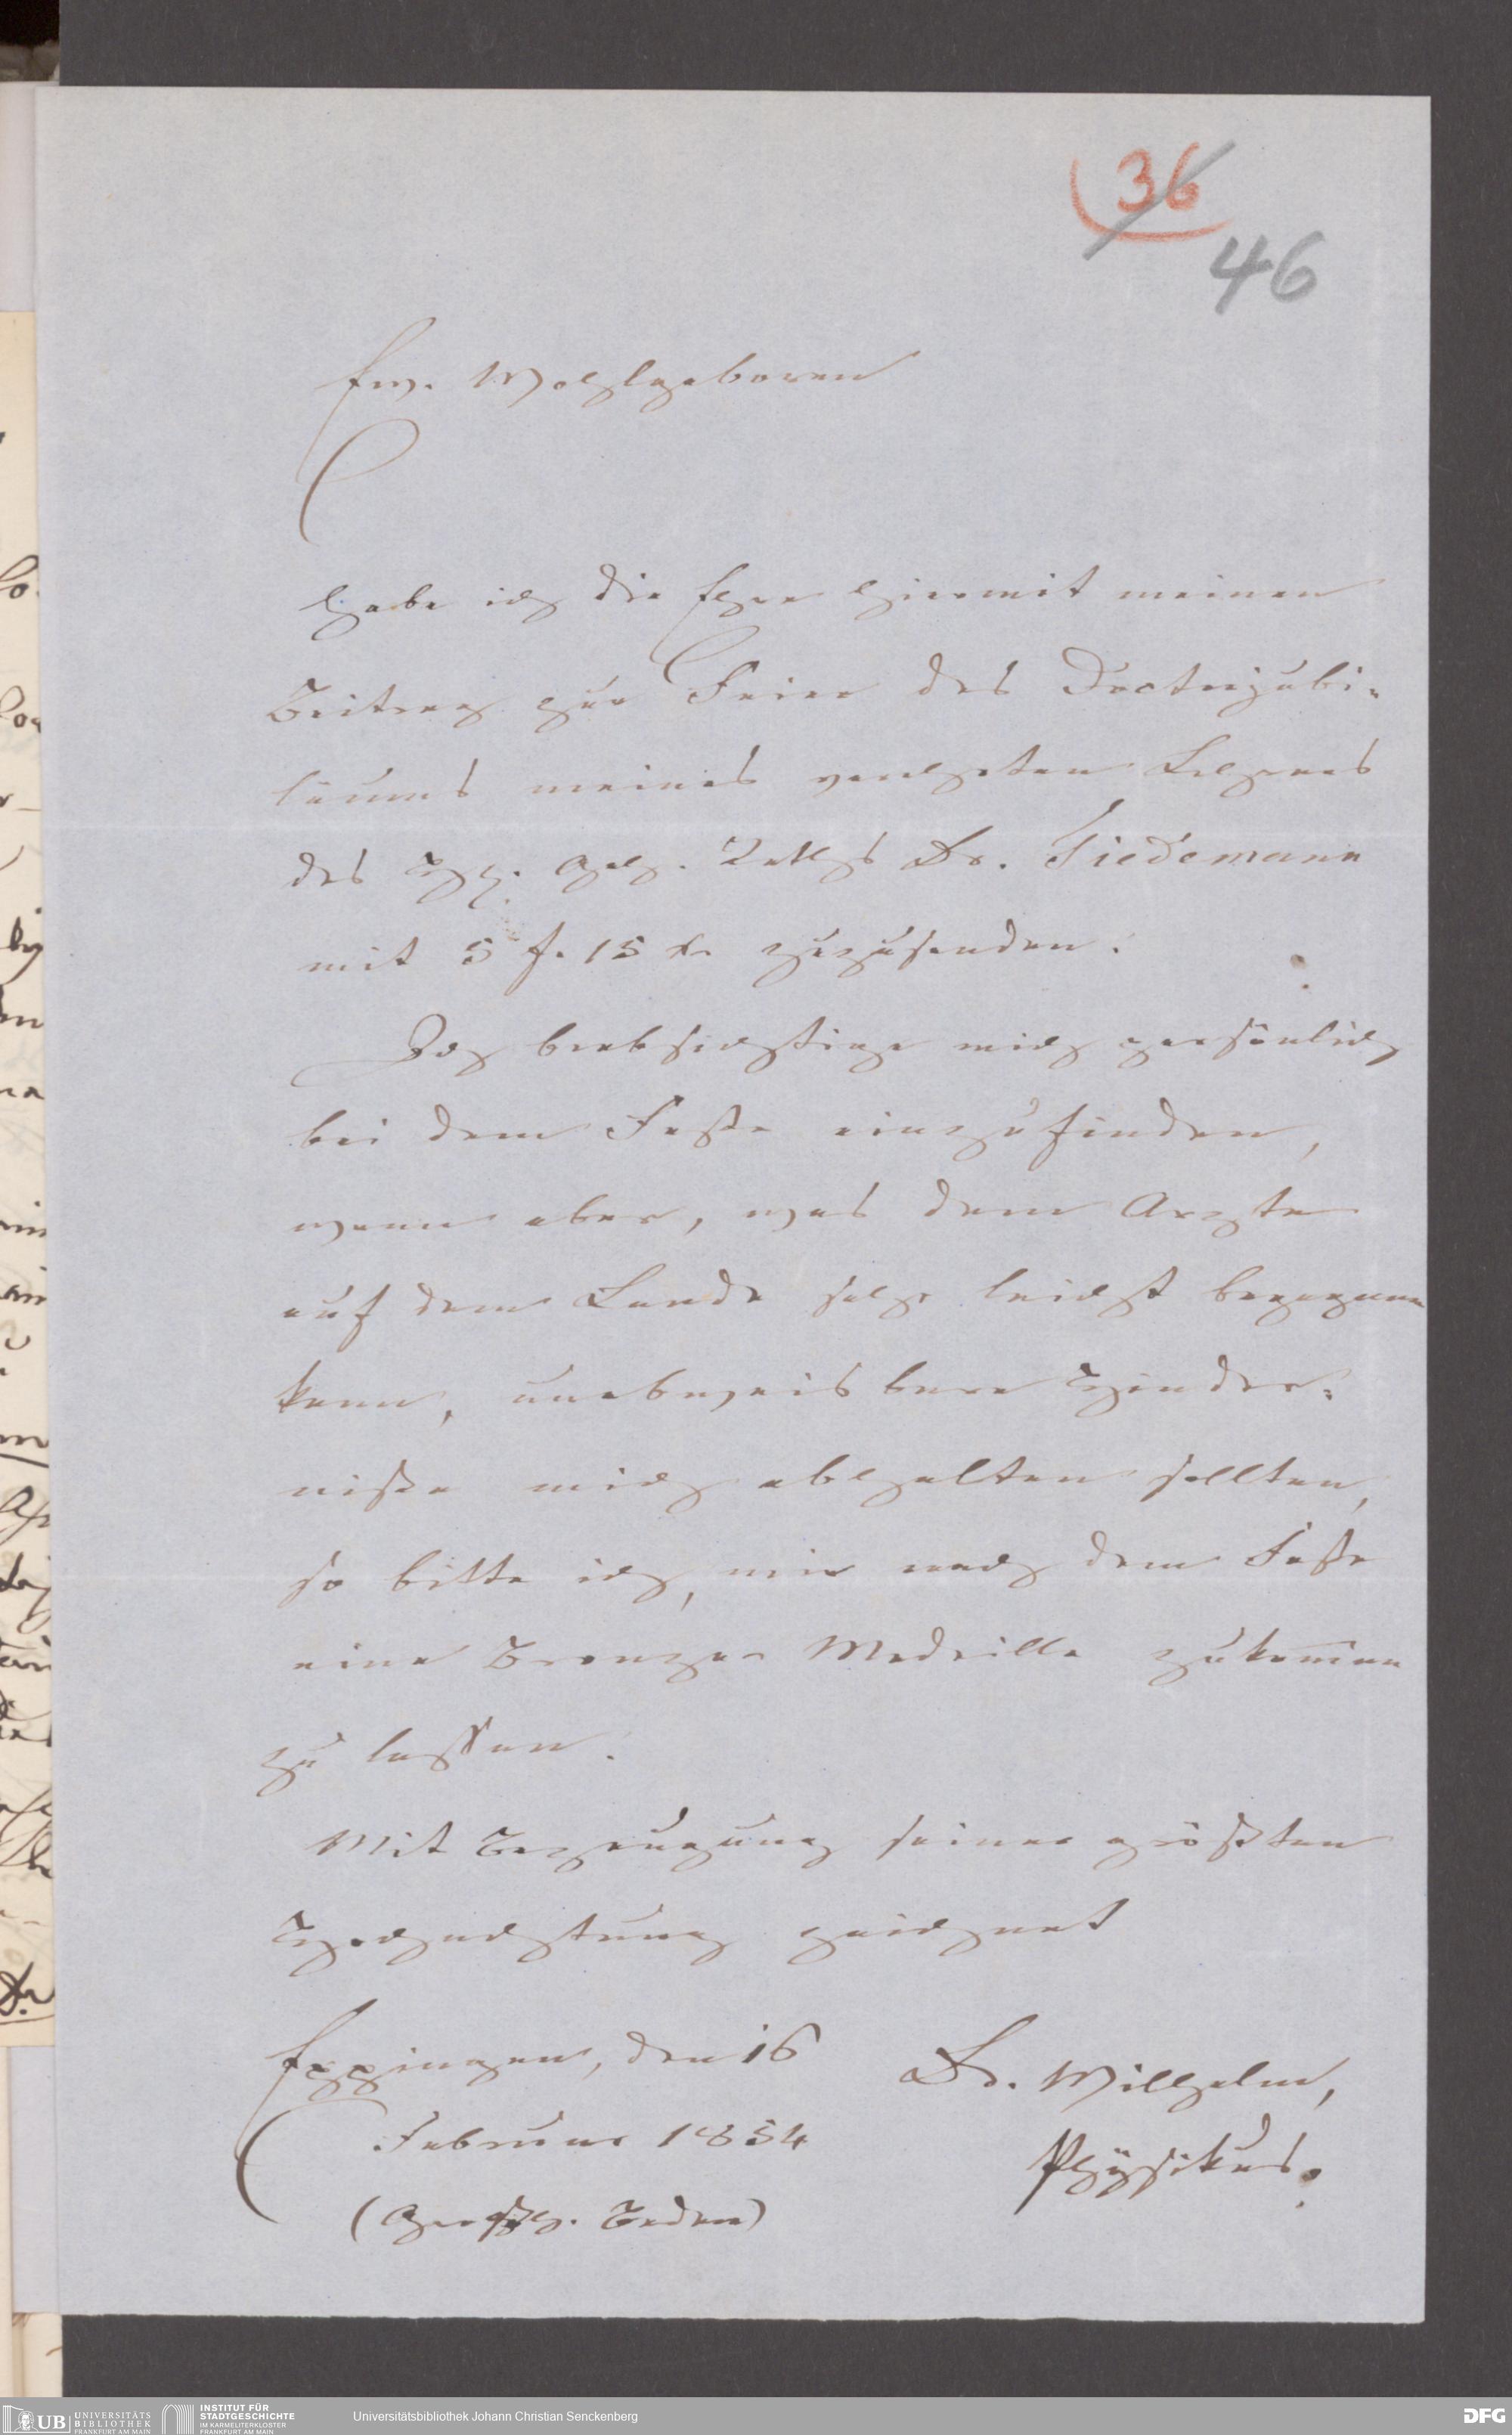 36
46
Ew. Wohlgeboren
habe ich die Ehre hiermit meinen
Beitrag zur Feier des Doctorjubi-
läums meines verehrten Lehrers
des H. Geh. Raths Dr. Tiedemann
mit 5 f. 15 Xr zuzusenden.
Ich beabsichtige mich persönlich
bei dem Feste einzufinden,
wenn aber, was dem Arzte
auf dem Lande sehr leicht begegnen
kann, unabweisbare Hinder-
niße mich abhalten sollten,
so bitte ich, mir nach dem Feste
eine Bronzer Medaille zukom̄en
zu lassen.
Mit Bezeugung seiner größten
Hochachtung zeichnet
Eppingen, den 16
Februar 1854
(Großh. Baden)
Dr. Wilhelm,
Physikus.
UB
UNIVERSITÄTS
BIBLIOTHEK
FRANKFURT AM MAIN
INSTITUT FÜR
STADTGESCHICHTE
IM KARMELITERKLOSTER
FRANKFURT AM MAIN
Universitätsbibliothek Johann Christian Senckenberg
DFG